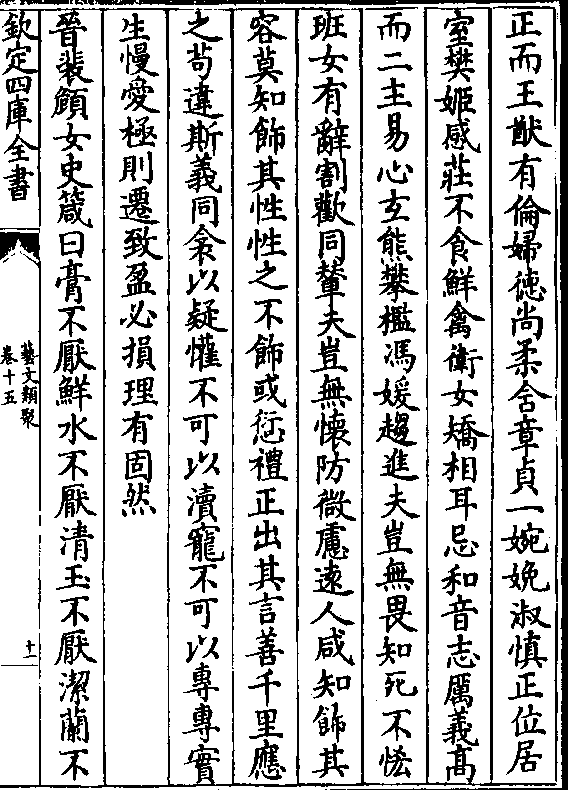 正而王猷有倫婦徳尚柔含章貞一婉娩淑慎正位居
室樊姬感莊不食鮮禽衛女矯相耳忌和音志厲義髙
而二主易心𤣥熊攀檻馮媛趨進夫豈無畏知死不恡
班女有辭割歡同輦夫豈無懐防微慮逺人咸知飾其
容莫知飾其性性之不飾或愆禮正出其言善千里應
之茍違斯義同衾以疑懽不可以瀆寵不可以專專實
生慢愛極則遷致盈必損理有固然
晉裴頠女史箴曰膏不厭鮮水不厭清玉不厭潔蘭不
欽定四庫全書
藝文類聚
卷十五
十一